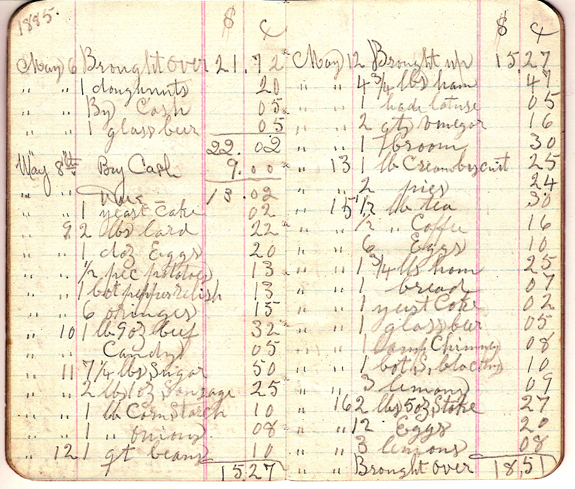 1885.
$ ¢
May 6 Brought over 21.72
" " 1 doughnuts 20
" " By Cash 05
" " 1 glass beer 05
22.02
May 8th By Cash 9.00
" " Due 13.02
" " 1 yeast Cake 02
" 9 2 lbs lard 22
" " 1 doz Eggs 20
" " 1/2 pec potatoes 13
" " 1 bot pepper relish 13
" " 6 oranges 15
" 10 1 lb 9 oz beef 32
" " Candy 05
" 11 7 1/4 lbs Sugar 50
" " 2 lbs 1 oz Sausage 25
" " 1 lb Corn Starch 10
" " 1 " onions 08
" 12 1 qt beans 10
15.27
$ ¢
May 12 Brought up 15 27
" " 4 3/4 lbs ham 47
" " 1 head latuse 05
" " 2 qts vinegar 16
" " 1 broom 30
" 13 1 lb Cream biscuit 25
" " 2 pies 24
" 15 1/2 lb tea 30
" " 1/2 " Coffee 16
" " 6 Eggs 10
" " 1 3/4 lbs ham 25
" " 1 bread 07
" " 1 yeast Cake 02
" " 1 glass beer 05
" " 1 lamp Chimney 08
" " 1 bot S. blacking 10
" " 3 lemons 09
" 16 2 lbs 5 oz Stake 27
" " 12 Eggs 20
" " 3 lemons 08
" " Brought over 18,51